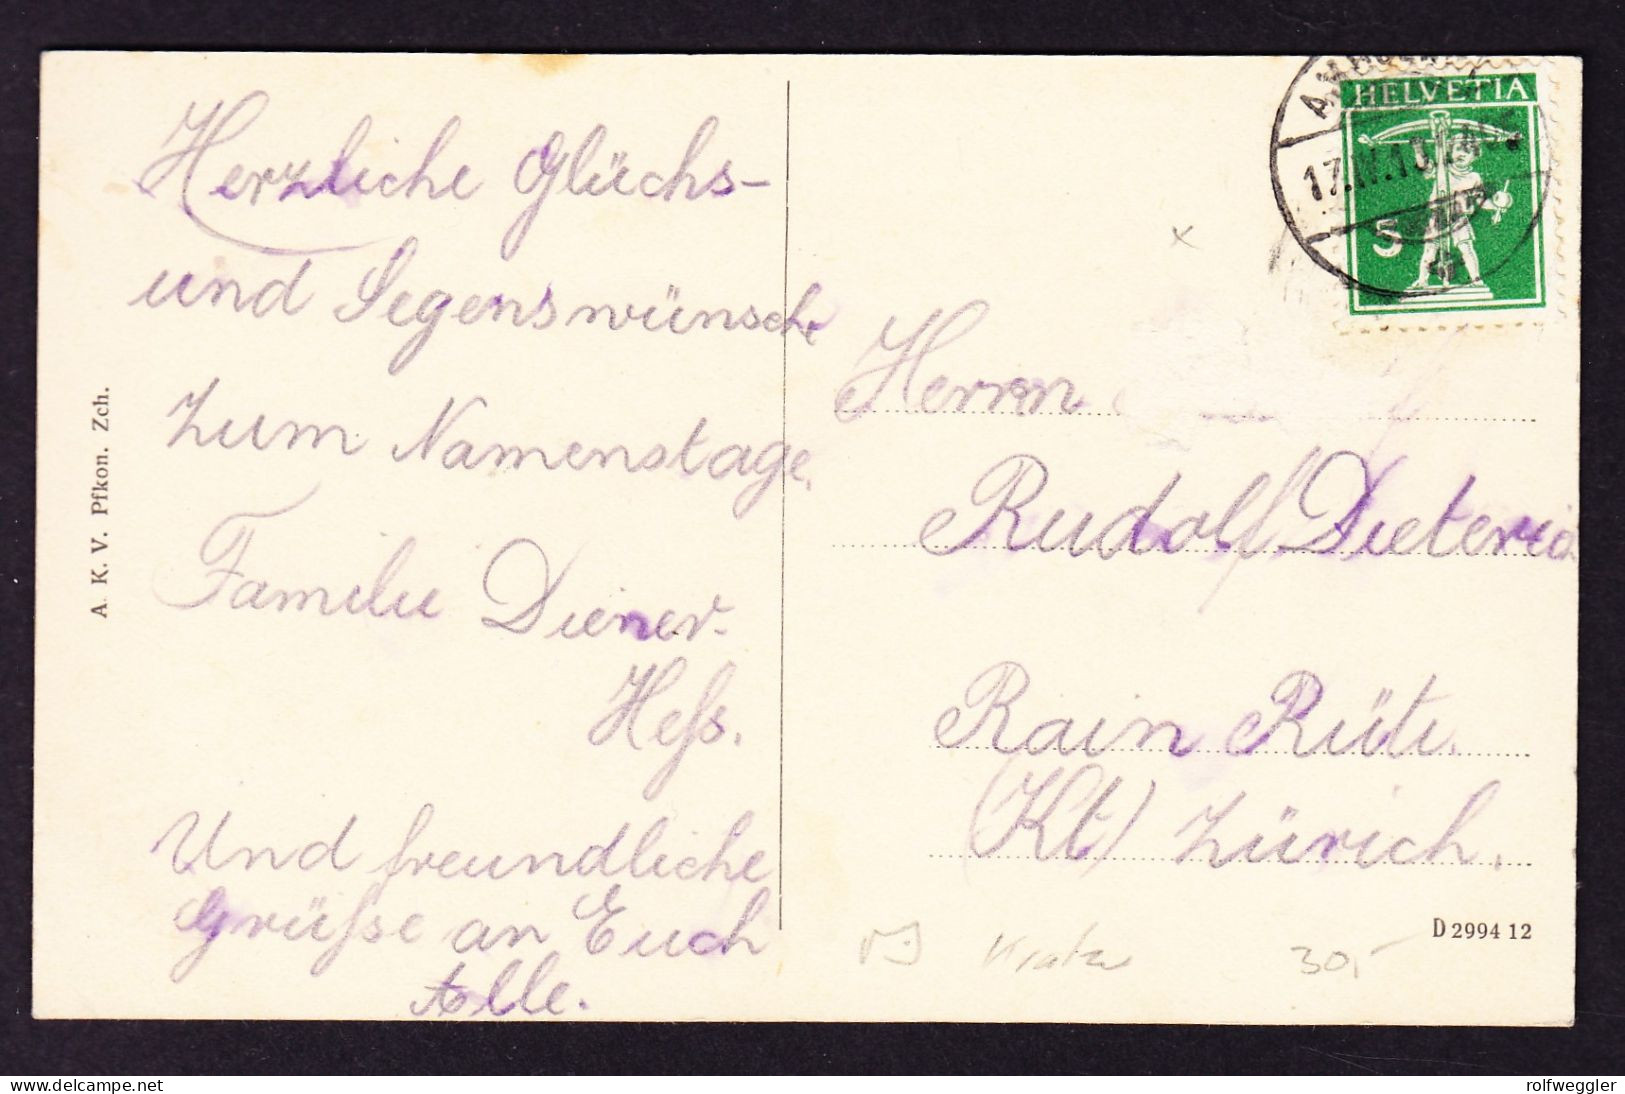 Herzliche Glücks-
und Segenswünsche
zum Namenstage.
Familie Diener-
Hefs.
Und freundliche
Grüfse an Euch
Alle.
A. K. V. Pfkon. Zch.
HELVETIA
17.IV.1
5
Herrn
Rudolf Dieterich
Rain Rüti.
(Kt) Zürich.
D 2994 12
30,-
delcampe.net
rolfweggler